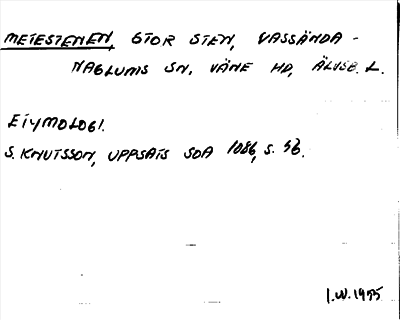 METESTENEN, STOR STEN, VASSÄNDA -
NAGLUMS SN. VÄNE HD, ÄLVSB. L.
ETYMOLOGI.
S. KNUTSSON, UPPSATS SOA 1086, s. 36.
I.W. 1955